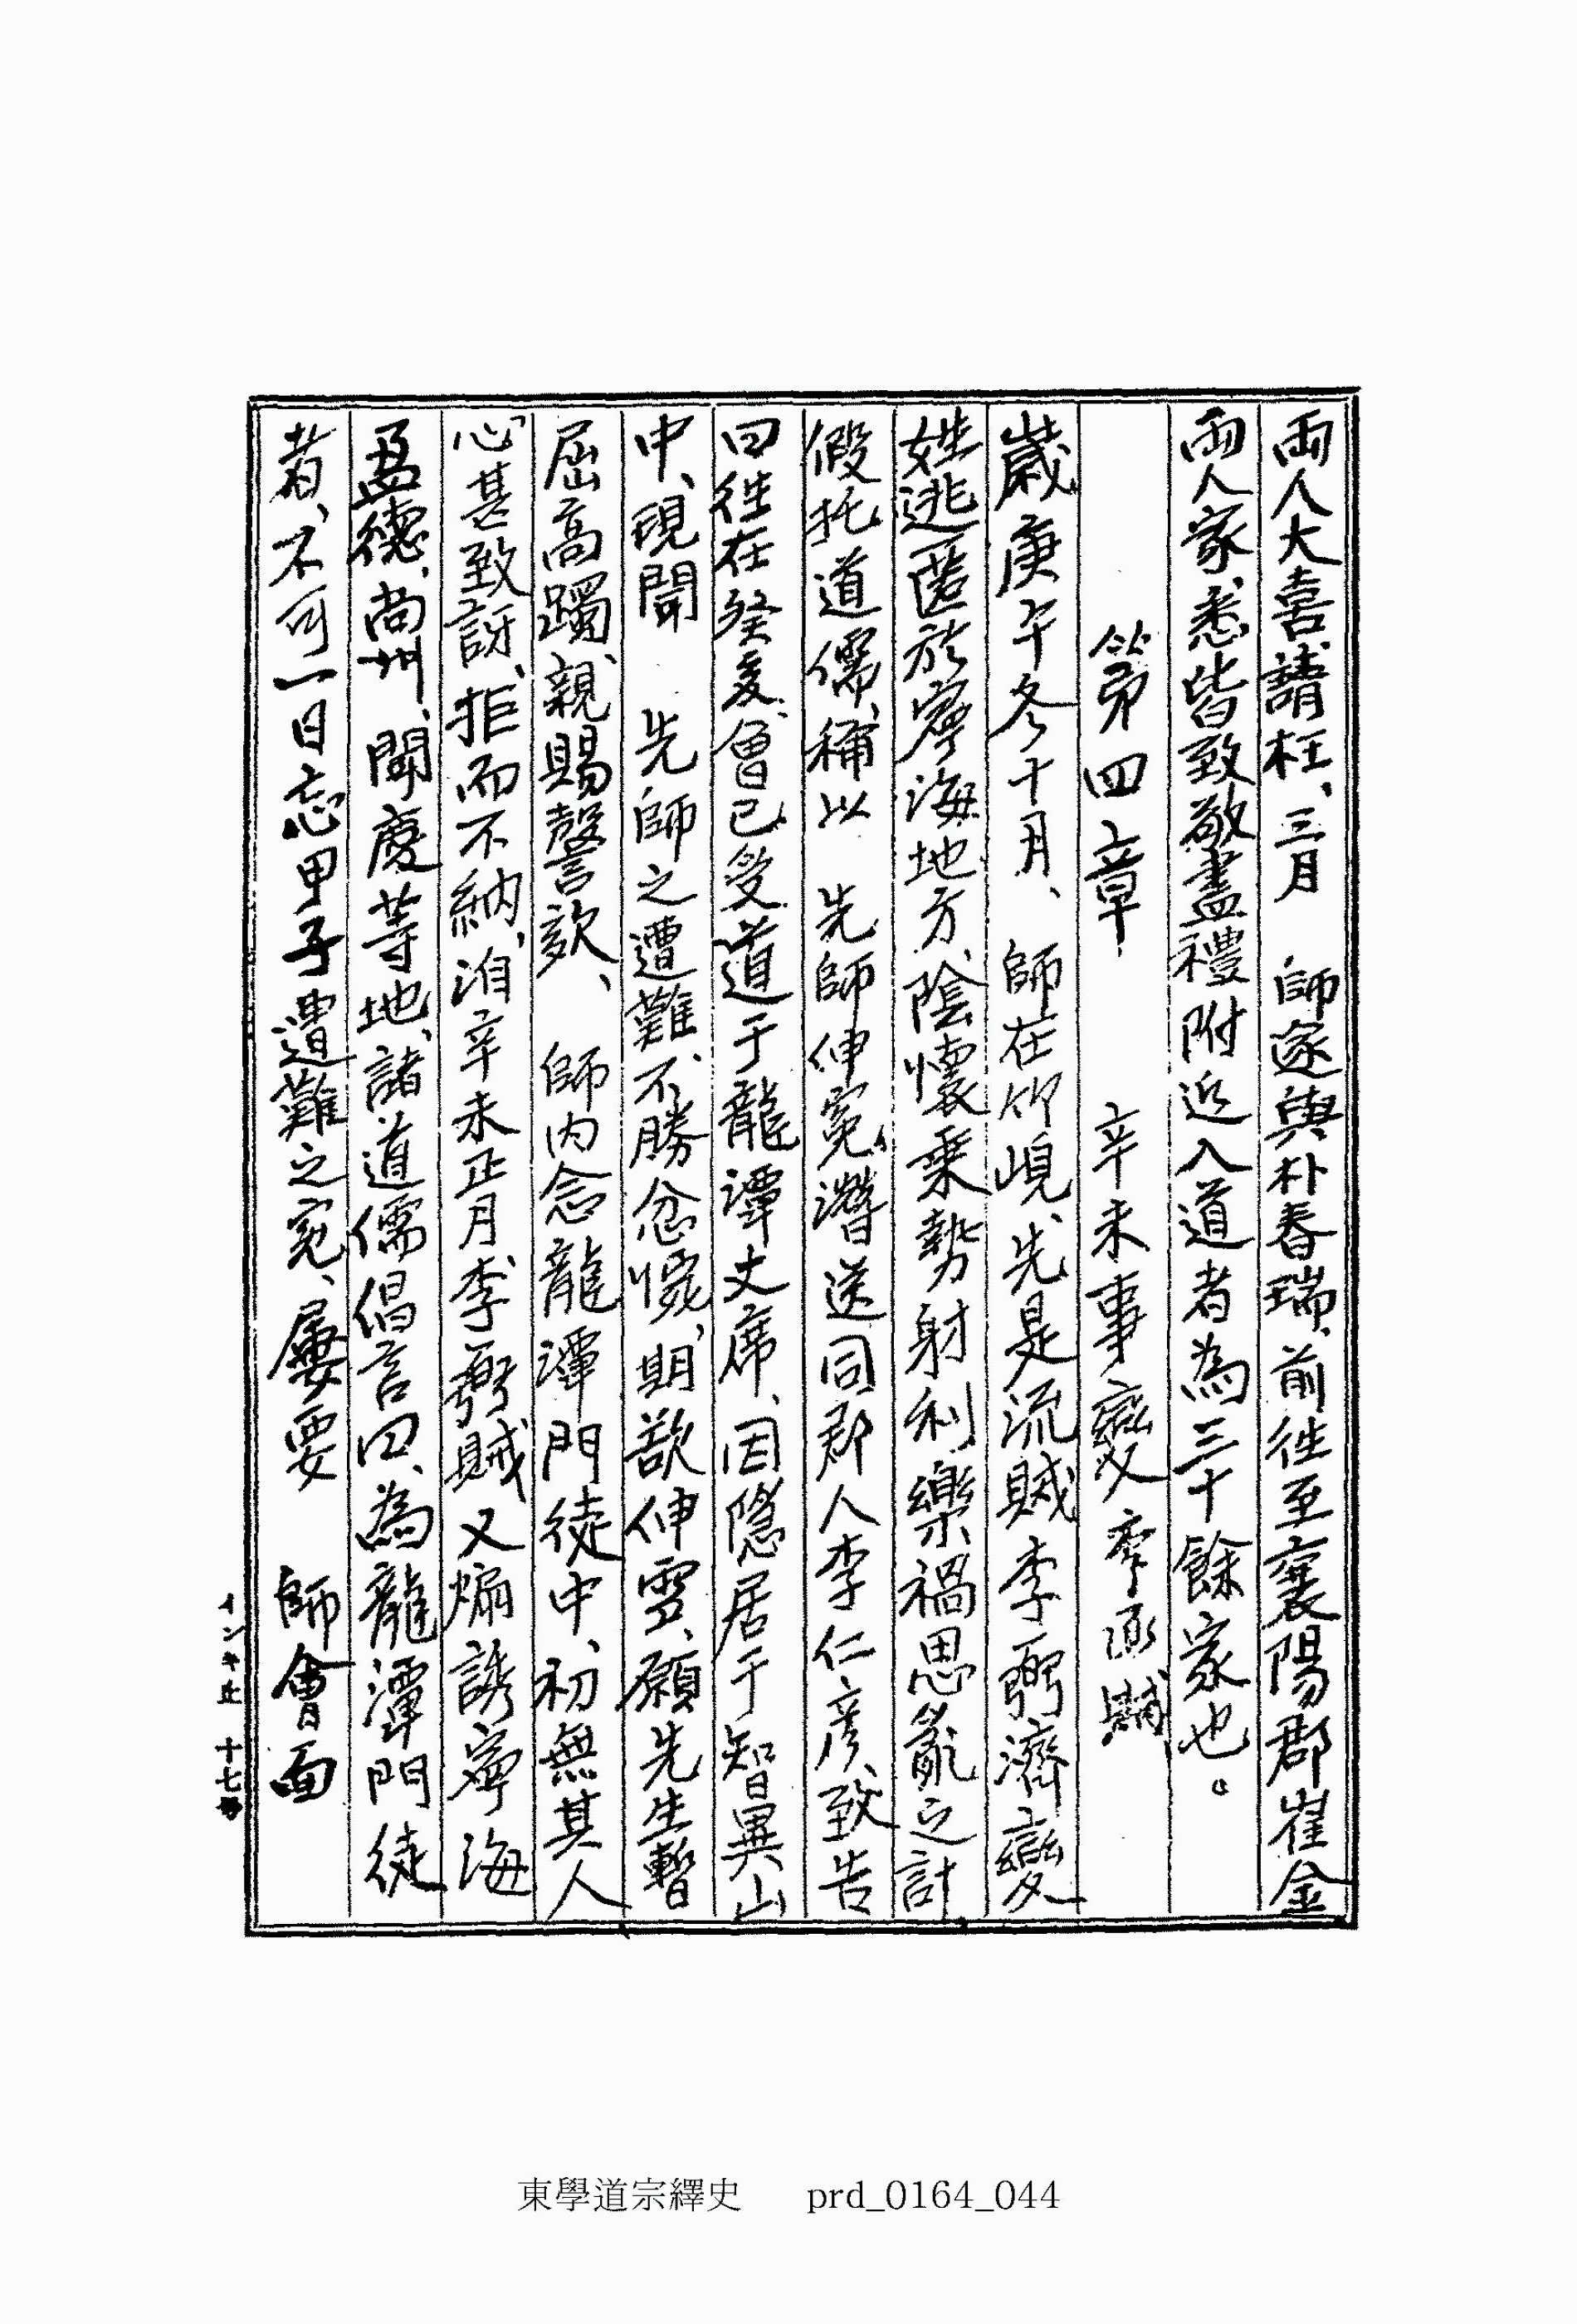 兩人大喜、請枉、三月　師遂與朴春瑞、前往至襄陽郡崔金
兩人家、悉皆致敬盡禮附近入道者為三十餘家也。
第四章　辛未事變
歲庚午冬十月、師在竹峴、先是流賊李弼濟變
姓逃匿於寧海地方、陰懷乘勢射利樂禍思亂之計
假托道儒、稱以　先師伸冤、潛送同郡人李仁彦、致告
曰往在癸亥、會已受道于龍潭丈席、因隱居于智異山
中、現聞　先師之遭難、不勝忿惋、期欲伸雪、願先生暫
屈高躅、親賜謦欬、　師內念龍潭門徒中、初無其人
心甚致訝、拒而不納、洎辛未正月、李弼賊又煽誘寧海
盈德、尚州、聞慶等地、諸道儒倡言曰、為龍潭門徒
者、不可一日忘甲子遭難之冤、屢要　師會面
十七
東學道宗繹史　prd_0164_044